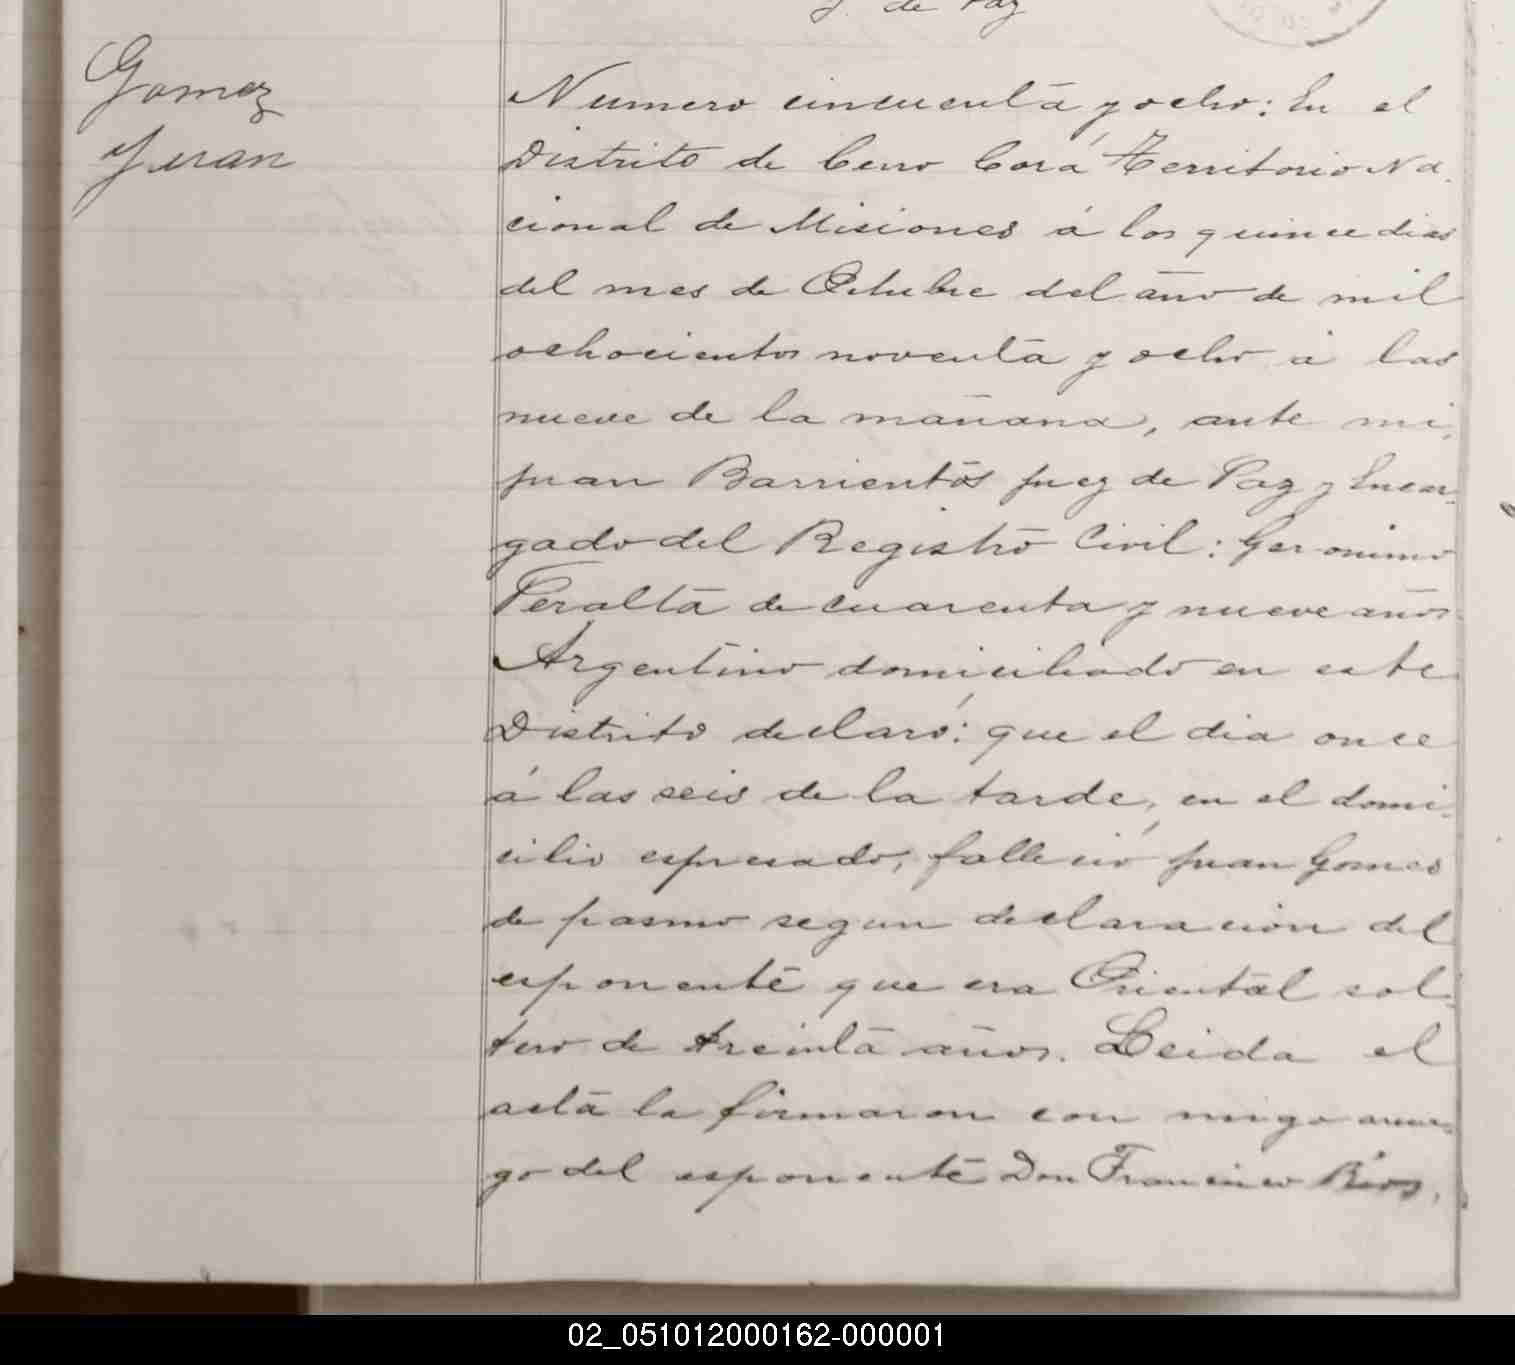 J. de Paz
Gomez
Juan
Numero cincuenta y ocho: En el
Distrito de Cerro Corá Territorio Na-
cional de Misiones á los quince dias
del mes de Octubre del año de mil
ochocientos noventa y ocho á las
nueve de la mañana, ante mi,
Juan Barrientos Juez de Paz y Encar-
gado del Registro Civil: Geronimo
Peralta de cuarenta y nueve años
Argentino domiciliado en este
Distrito declaró: que el dia once
á las seis de la tarde, en el domi-
cilio espresado, falleció Juan Gomes
de pasmo segun declaracion del
esponente que era Oriental sol-
tero de treinta años. Leida el
acta la firmaron con migo a rue-
go del esponente Don Francisco Rios,
02_051012000162-000001